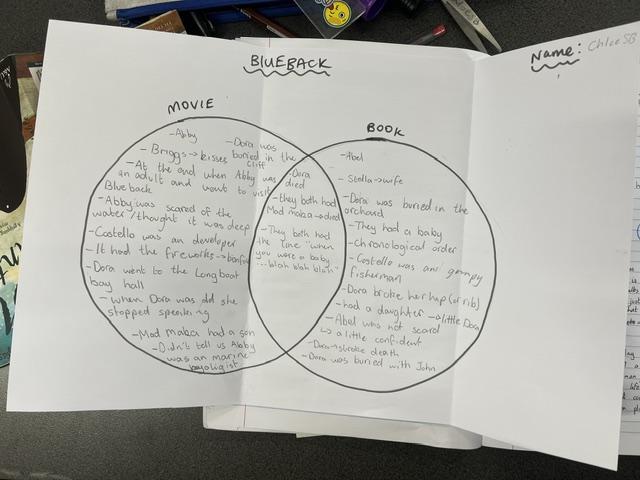 BLUEBACK
Name: Chloe SB
MOVIE
-Abby
-Dora was
buried in the
cliff
-Briggs → kisses
-At the end when Abby was
an adult and want to visit
Blueback
-Abby was scared of the
water/thought it was deep
-Costello was an developer
-It had the fireworks →
-Dora went to the Longboat
bay hall
-when Dora was old she
stopped speaking
-Mad maka had a son
-Didn't tell us Abby
was an marine
-Dora
died
-they both had
Mad maka → died
-They both had
the line "when
you were a baby
...blah blah blah"
BOOK
-Abel
-Stella → wife
-Dora was buried in the
orchard
-They had a baby
-Chronological order
-Costello was and grumpy
fisherman
-Dora broke her hip (or rib)
-had a daughter → little Dora
-Abel was not scared
↳ a little confident
-Dora → stroke death
-Dora was buried with John